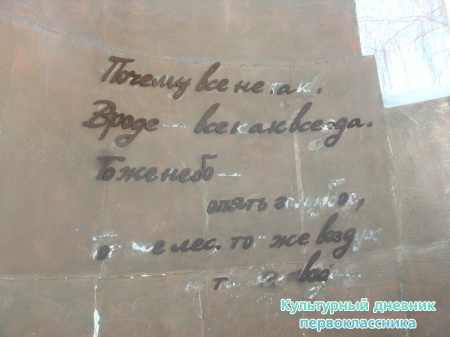 Почему все не так.
Вроде — все как всегда.
То же небо —
опять голубое,
лес, то же воздух
Культурный дневник
первоклассника